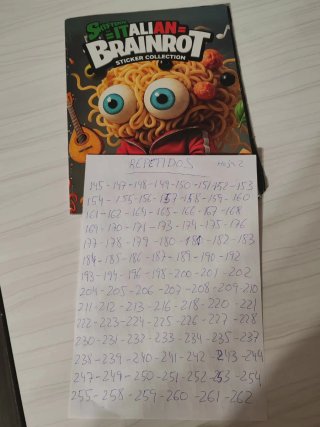 SKIFIDOL
ITALIAN
BRAINROT
STICKER COLLECTION
REPETIDOS Hoja 2
145-147-148-149-150-151-152-153
154-155-156-157-158-159-160
161-162-164-165-166-167-168
169-170-171-173-174-175-176
177-178-179-180-181-182-183
184-185-186-187-189-190-192
193-194-196-198-200-201-202
204-205-206-207-208-209-210
211-212-213-216-218-220-221
222-223-224-225-226-227-228
230-231-232-233-234-235-237
238-239-240-241-242-243-244
247-249-250-251-252-253-254
255-258-259-260-261-262